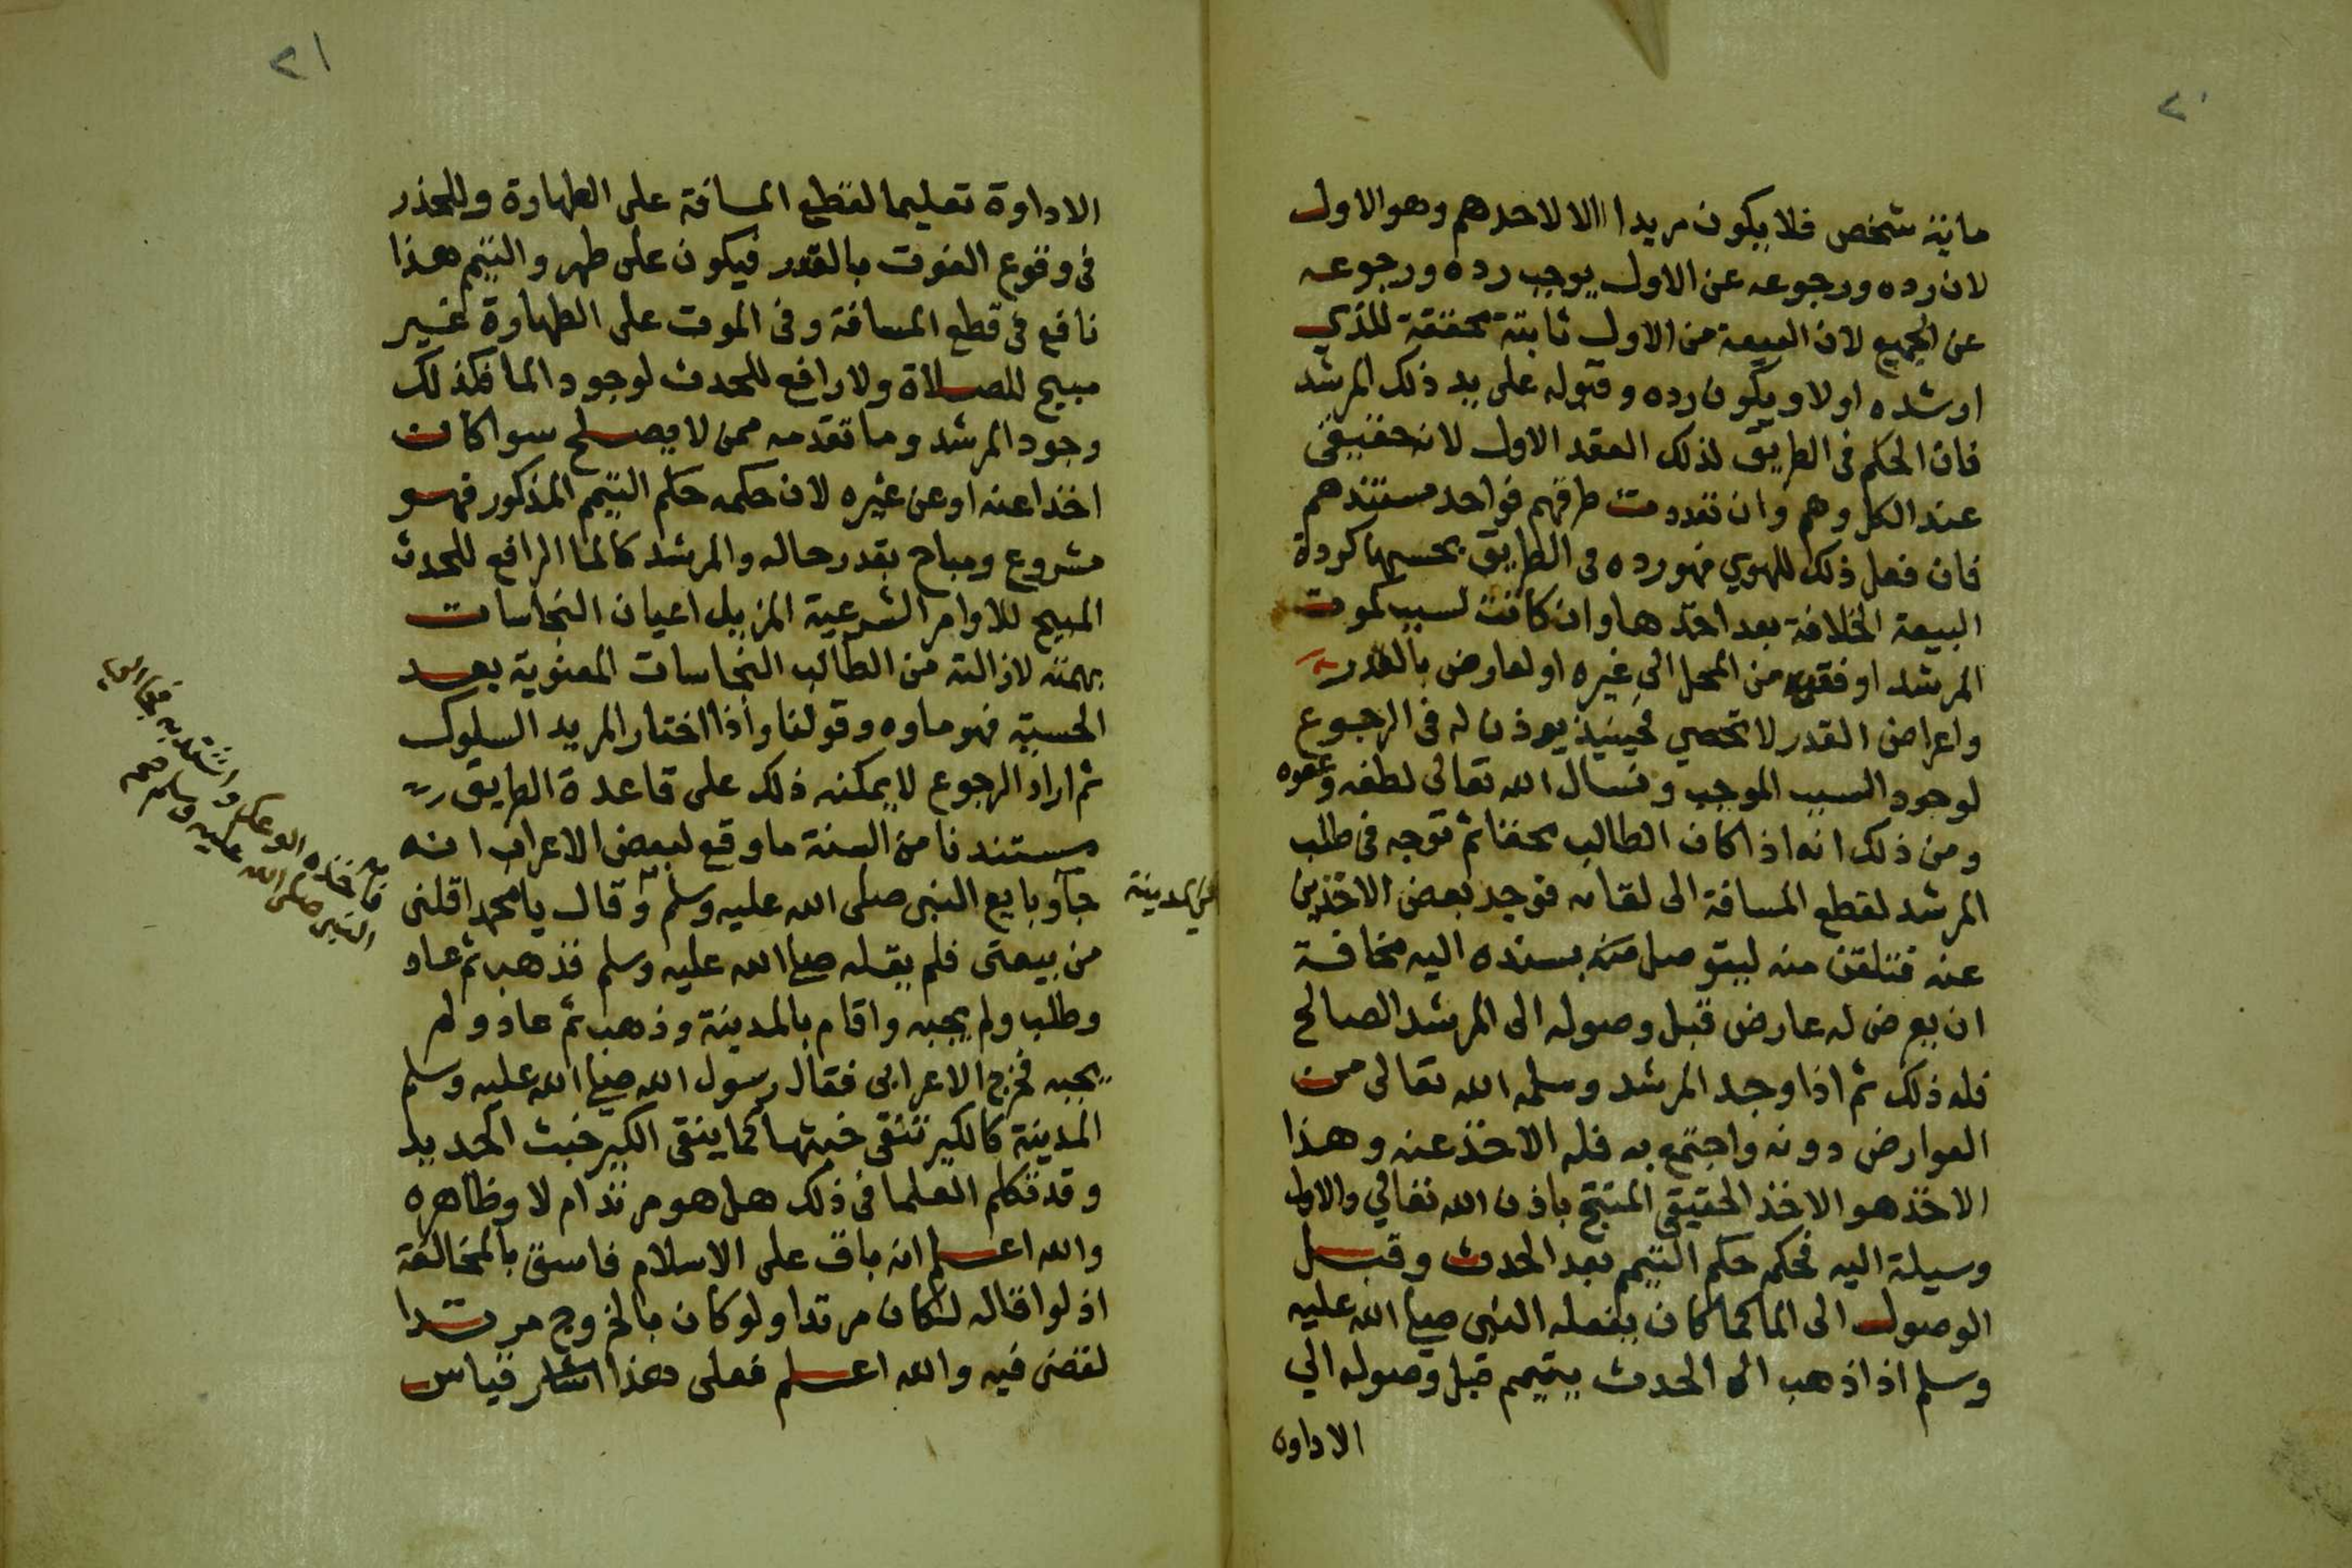 ٢٠
ماية شخص فلا يكون مريدا الا لاحدهم وهو الاول
لان رده ورجوعه عن الاول يوجب رده ورجوعه
عن الجميع لان البيعة من الاول ثابتة محققة للذي
ارشده اولا ويكون رده وقبوله على يد ذلك المرشد
فان الحكم في الطريق لذلك العقد الاول لانه حقيقي
عند الكل وهم وان تعددت طرقهم فواحد مستندهم
فان فعل ذلك للهوي فهو رده في الطريق بحسبها كردة
البيعة الخلافة بعد اخذها وان كانت لسبب كموت
المرشد او فقده من المحل الي غيره او لعارض بالقدر
واعراض القدر لا تحصي فحينيذ يوذن له في الرجوع
لوجود السبب الموجب ونسال الله تعالى لطفه وعفوه
ومن ذلك انه اذا كان الطالب محقا ثم توجه في طلب
المرشد لقطع المسافة الى لقائه فوجد بعض الاخذين
عنه فتلقن منه ليتوصل منه بسنده اليه مخافة
ان يعرض له عارض قبل وصوله الى المرشد الصالح
فله ذلك ثم اذا وجد المرشد وسلمه الله تعالى من
العوارض دونه واجتمع به فله الاخذ عنه وهذا
الاخذ هو الاخذ الحقيقي المنتج باذن الله تعالي والاول
وسيلة اليه فحكمه حكم التيمم بعد الحدث وقبل
الوصول الى الما كما كان يفعله النبي صلى الله عليه
وسلم اذا ذهب الى الحدث يتيمم قبل وصوله الي
الاداوة
٢١
الاداوة تعليما لقطع المسافة على الطهارة وللحذر
في وقوع الفوت بالقدر فيكون على طهر والتيمم هذا
نافع في قطع المسافة وفي الموت على الطهارة غير
مبيح للصلاة ولا رافع للحدث لوجود الما فكذلك
وجود المرشد وما تقدمه ممن لا يصلح سوا كان
اخذا عنه او عن غيره لان حكمه حكم التيمم المذكور فهو
مشروع ومباح بقدر حاله والمرشد كالما الرافع للحدث
المبيح للاوامر الشرعية المزيل اعيان النجاسات
بهمته لازالته من الطالب النجاسات المعنوية بعد
الحسية فهو ماوه وقولنا واذا اختار المريد السلوك
ثم اراد الرجوع لا يمكنه ذلك على قاعدة الطريق
مستندنا من السنة ما وقع لبعض الاعراب انه
جآ وبايع النبي صلى الله عليه وسلم وقال يا محمد اقلني
من بيعتي فلم يقله صلى الله عليه وسلم فذهب ثم عاد
وطلب ولم يجبه واقام بالمدينة وذهب ثم عاد ولم
يجبه فخرج الاعرابي فقال رسول الله صلى الله عليه وسلم
المدينة كالكير تنقي خبثها كما ينقى الكير خبث الحديد
وقد تكلم العلما في ذلك هل هو مرتد ام لا وظاهره
والله اعلم انه باق على الاسلام فاسق بالمخالفة
اذ لو اقاله لكان مرتدا ولو كان بالخروج مرتدا
لقضى فيه والله اعلم فعلى هذا قياس
في المدينة
فاخذه الوعك واشتد به فجا الي
النبي صلى الله عليه وسلم صح